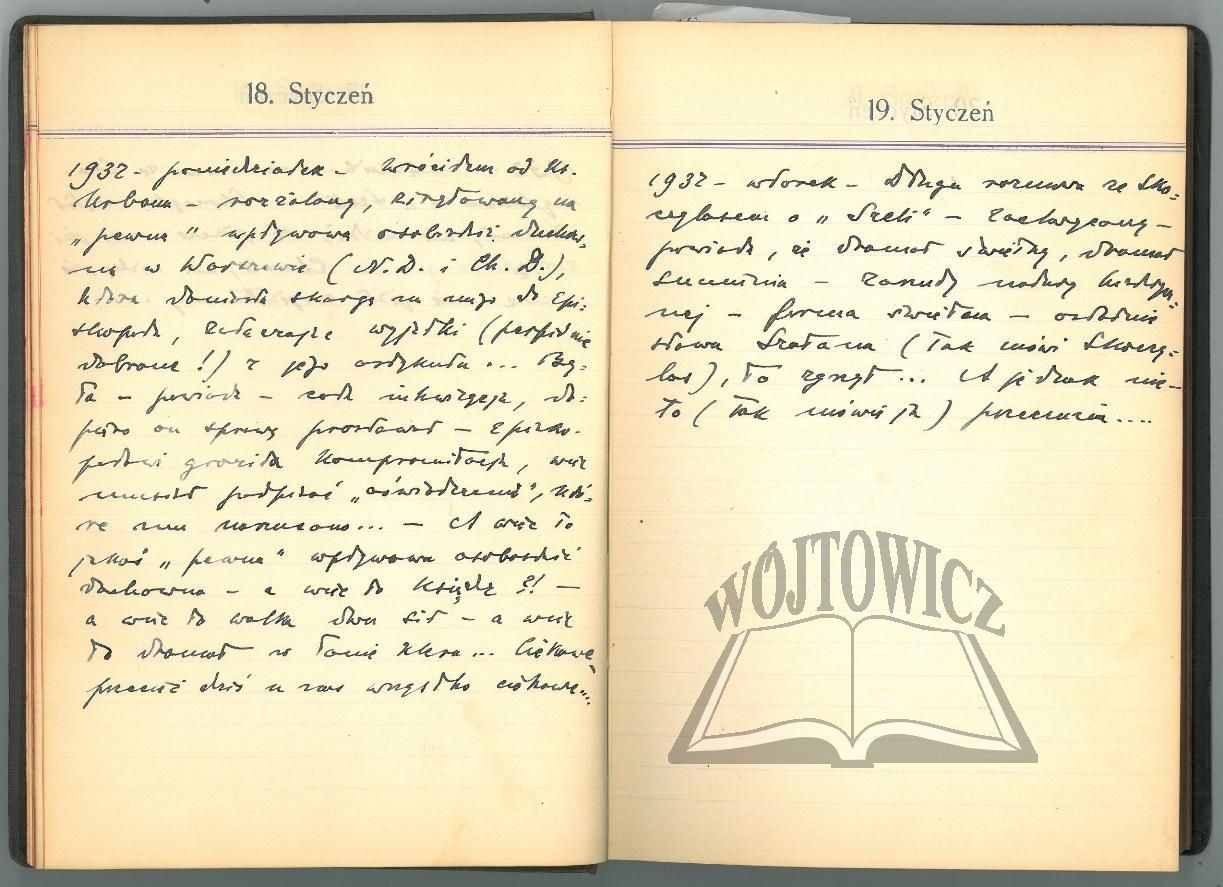 18. Styczeń
1932 – poniedziałek – Wróciłem od ks.
Urbana – rozżalony, zirytowany na
„pewną” wpływową osobistość duchow-
ną w Warszawie (N.D. i Ch.D.),
która doniosła skargę na niego do Epi-
skopatu, załączając wyjątki (perfidnie
dobrane!) z jego artykułu... By-
ła – powiada – cała inkwizycja, do-
piero on sprawę – Episko-
patowi groziła kompromitacja, więc
musiał podpisać „oświadczenie”, któ-
re mu narzucono... – A więc to
jakaś „pewna” wpływowa osobistość
duchowna – a więc to ksiądz?! –
a więc to walka dwu sił – a więc
to dramat w łonie kleru... Ciekawe,
przecież dziś u nas wszystko ciekawe....
19. Styczeń
1932 – wtorek – Długa rozmowa ze Sko-
czylasem o „Szeli” – zachwycony –
powiada, że dramat świetny, dramat
sumienia – zarzuty natury
nej – forma świetna – ostatnie
słowa Szatana (tak mówi Skoczy-
las), to zgrzyt... A jednak nie-
to (tak mówię ja) przecenia....
WÓJTOWICZ